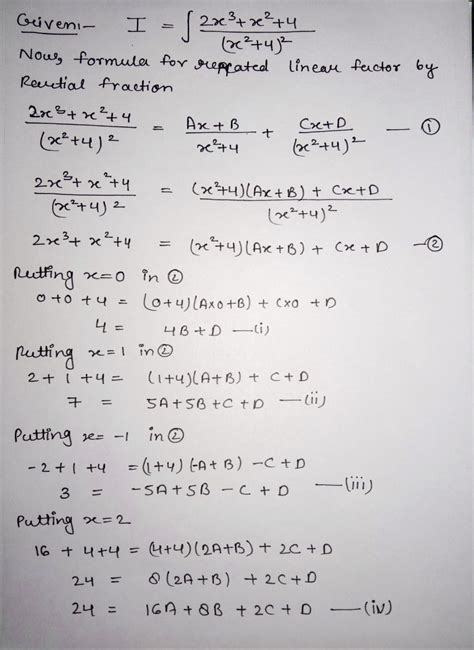 Given:- I = ∫ 2x³+x²+4 / (x²+4)²
Now, formula for reppated linear factor by
Reurtial fraction
2x³+x²+4 / (x²+4)² = Ax+B / x²+4 + Cx+D / (x²+4)² — ①
2x³+x²+4 / (x²+4)² = (x²+4)(Ax+B) + Cx+D / (x²+4)²
2x³+x²+4 = (x²+4)(Ax+B) + Cx+D —②
Putting x=0 in ②
0+0+4 = (0+4)(A×0+B) + C×0 +D
4 = 4B+D —(i)
Putting x=1 in ②
2+1+4 = (1+4)(A+B) + C+D
7 = 5A+5B+C+D —(ii)
Putting x= -1 in ②
-2+1+4 = (1+4)(-A+B) -C+D
3 = -5A+5B-C+D —(iii)
Putting x=2
16 + 4+4 = (4+4)(2A+B) + 2C+D
24 = 8(2A+B) + 2C+D
24 = 16A+8B + 2C+D —(iv)